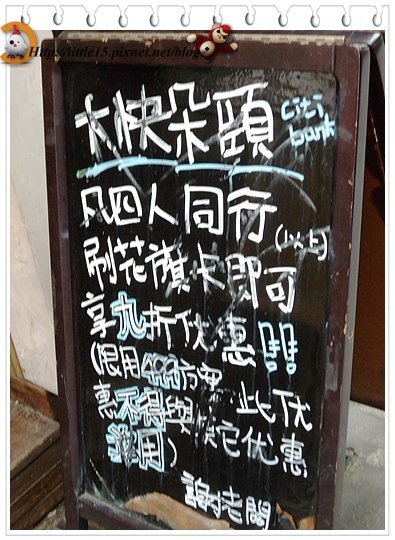 Http://little15.pixnet.net/blog
大快朵頤 citi
bank
凡四人同行(以上)
刷花旗卡即可
享九折优惠
(限用 此优
惠不得與其它优惠
用)
謝